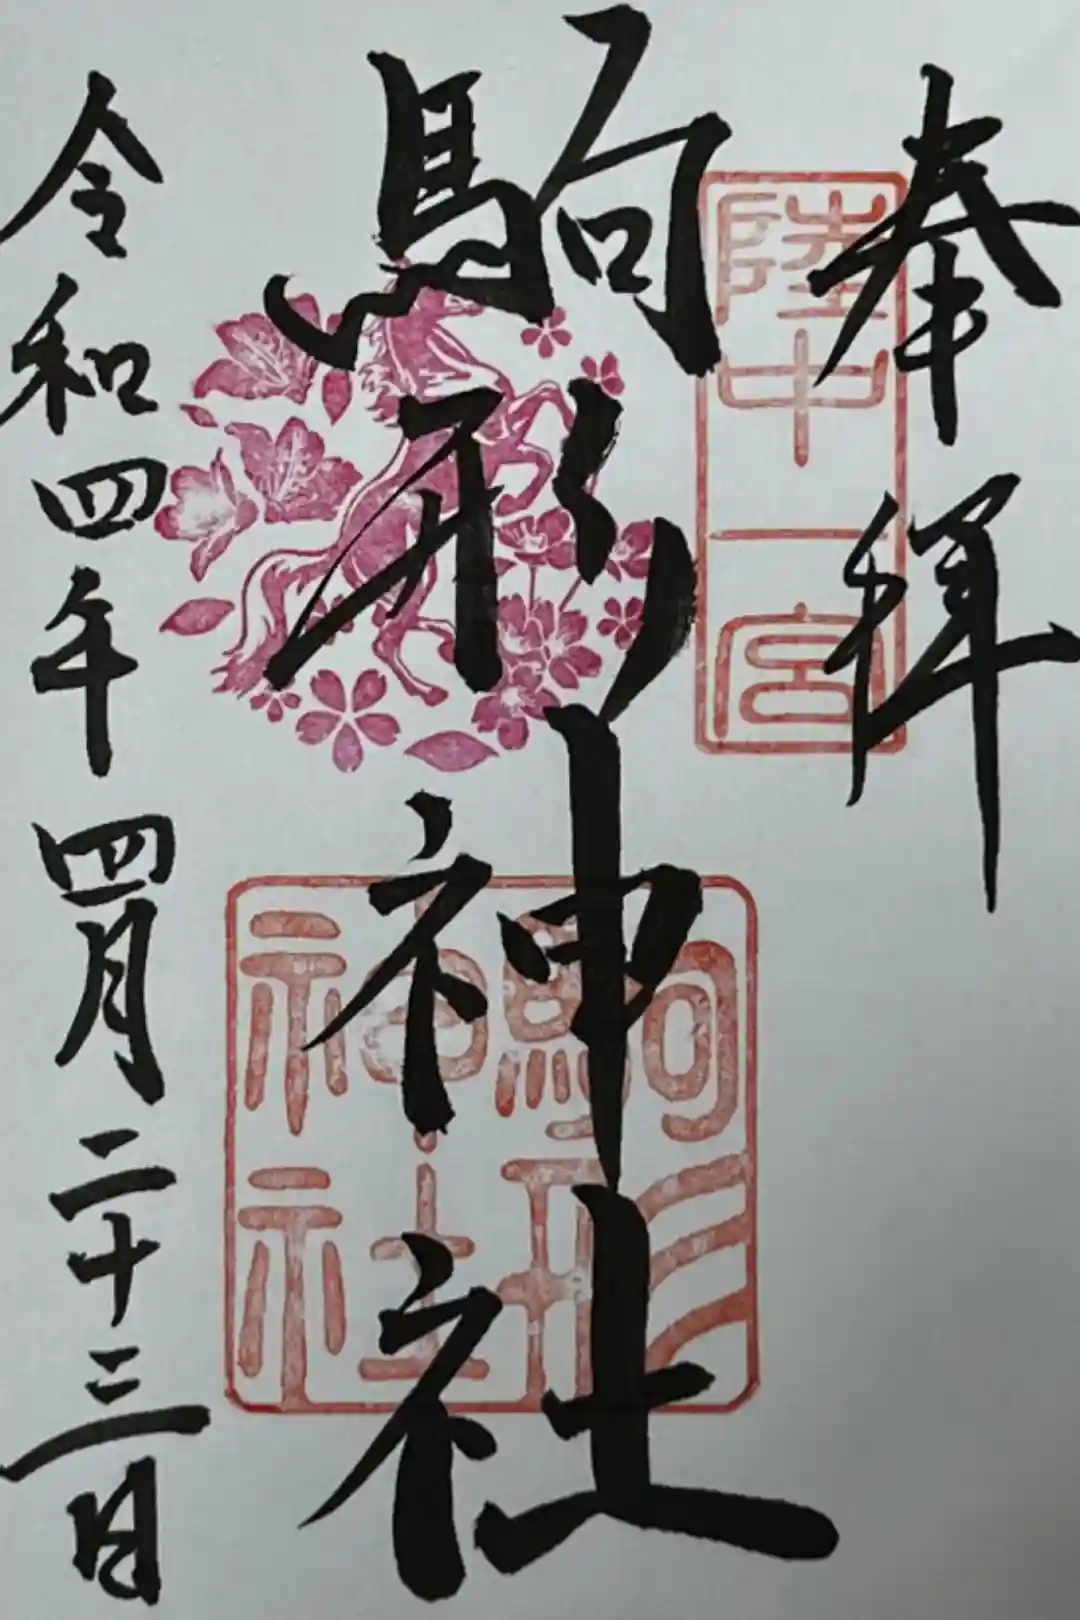 奉拜
陸中一宮
駒形神社
駒形神社
令和四年四月二十三日